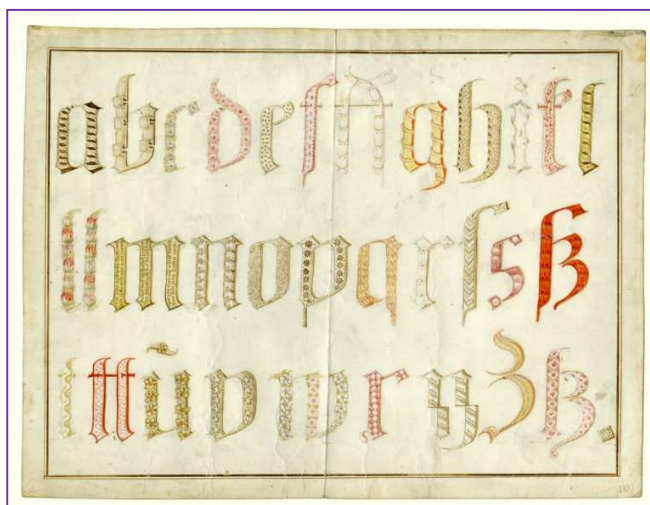 a b c d e f ff g h i k l
ll m n o p q r ſ s ß
t tt ŭ v w x y z tz.